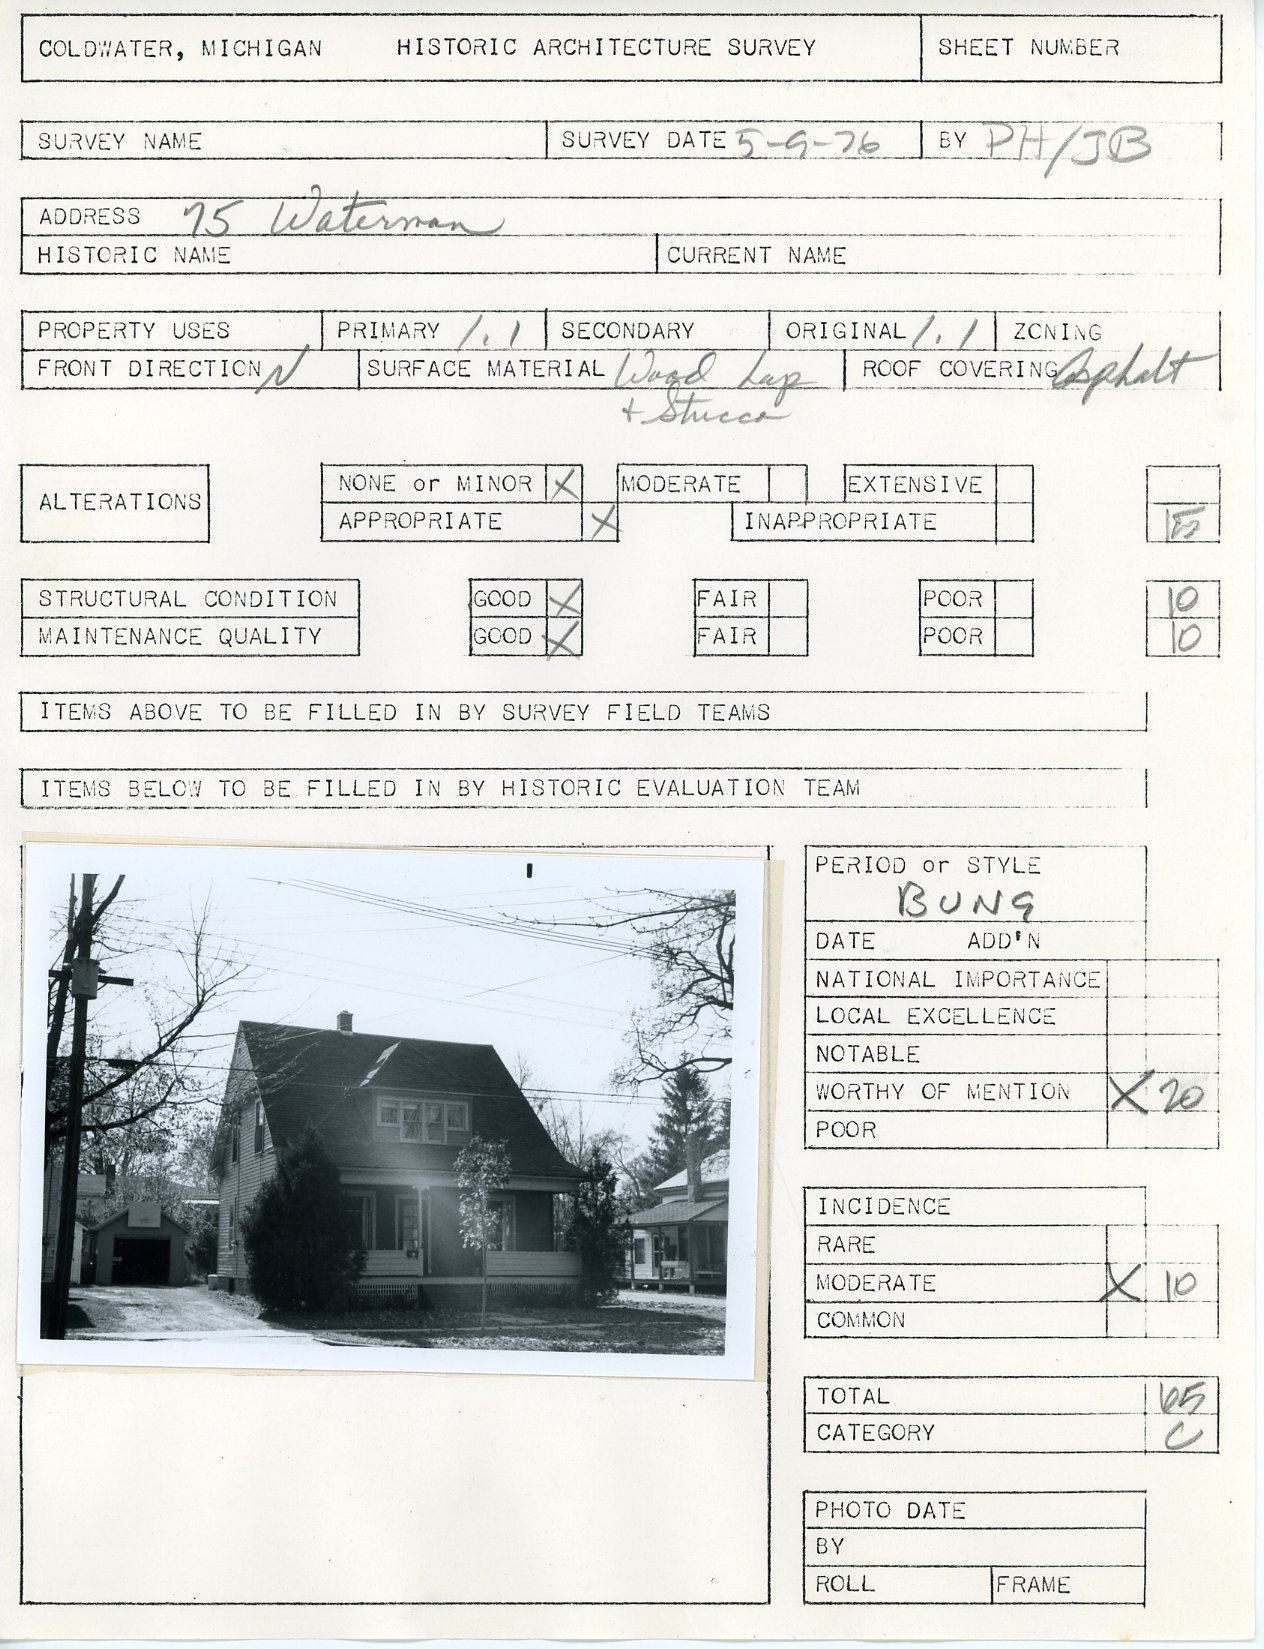 COLDWATER, MICHIGAN HISTORIC ARCHITECTURE SURVEY SHEET NUMBER
SURVEY NAME SURVEY DATE 5-9-76 BY PH/JB
ADDRESS 75 Waterman
HISTORIC NAME CURRENT NAME
PROPERTY USES PRIMARY 1.1 SECONDARY ORIGINAL 1.1 ZONING
FRONT DIRECTION N SURFACE MATERIAL Wood Lap ROOF COVERING Asphalt
+ Stucco
NONE or MINOR X MODERATE EXTENSIVE
ALTERATIONS
APPROPRIATE X INAPPROPRIATE 15
STRUCTURAL CONDITION GOOD X FAIR POOR 10
MAINTENANCE QUALITY GOOD X FAIR POOR 10
ITEMS ABOVE TO BE FILLED IN BY SURVEY FIELD TEAMS
ITEMS BELOW TO BE FILLED IN BY HISTORIC EVALUATION TEAM
PERIOD or STYLE
BUNG
DATE ADD'N
NATIONAL IMPORTANCE
LOCAL EXCELLENCE
NOTABLE
WORTHY OF MENTION X 20
POOR
INCIDENCE
RARE
MODERATE X 10
COMMON
TOTAL 65
CATEGORY C
PHOTO DATE
BY
ROLL FRAME